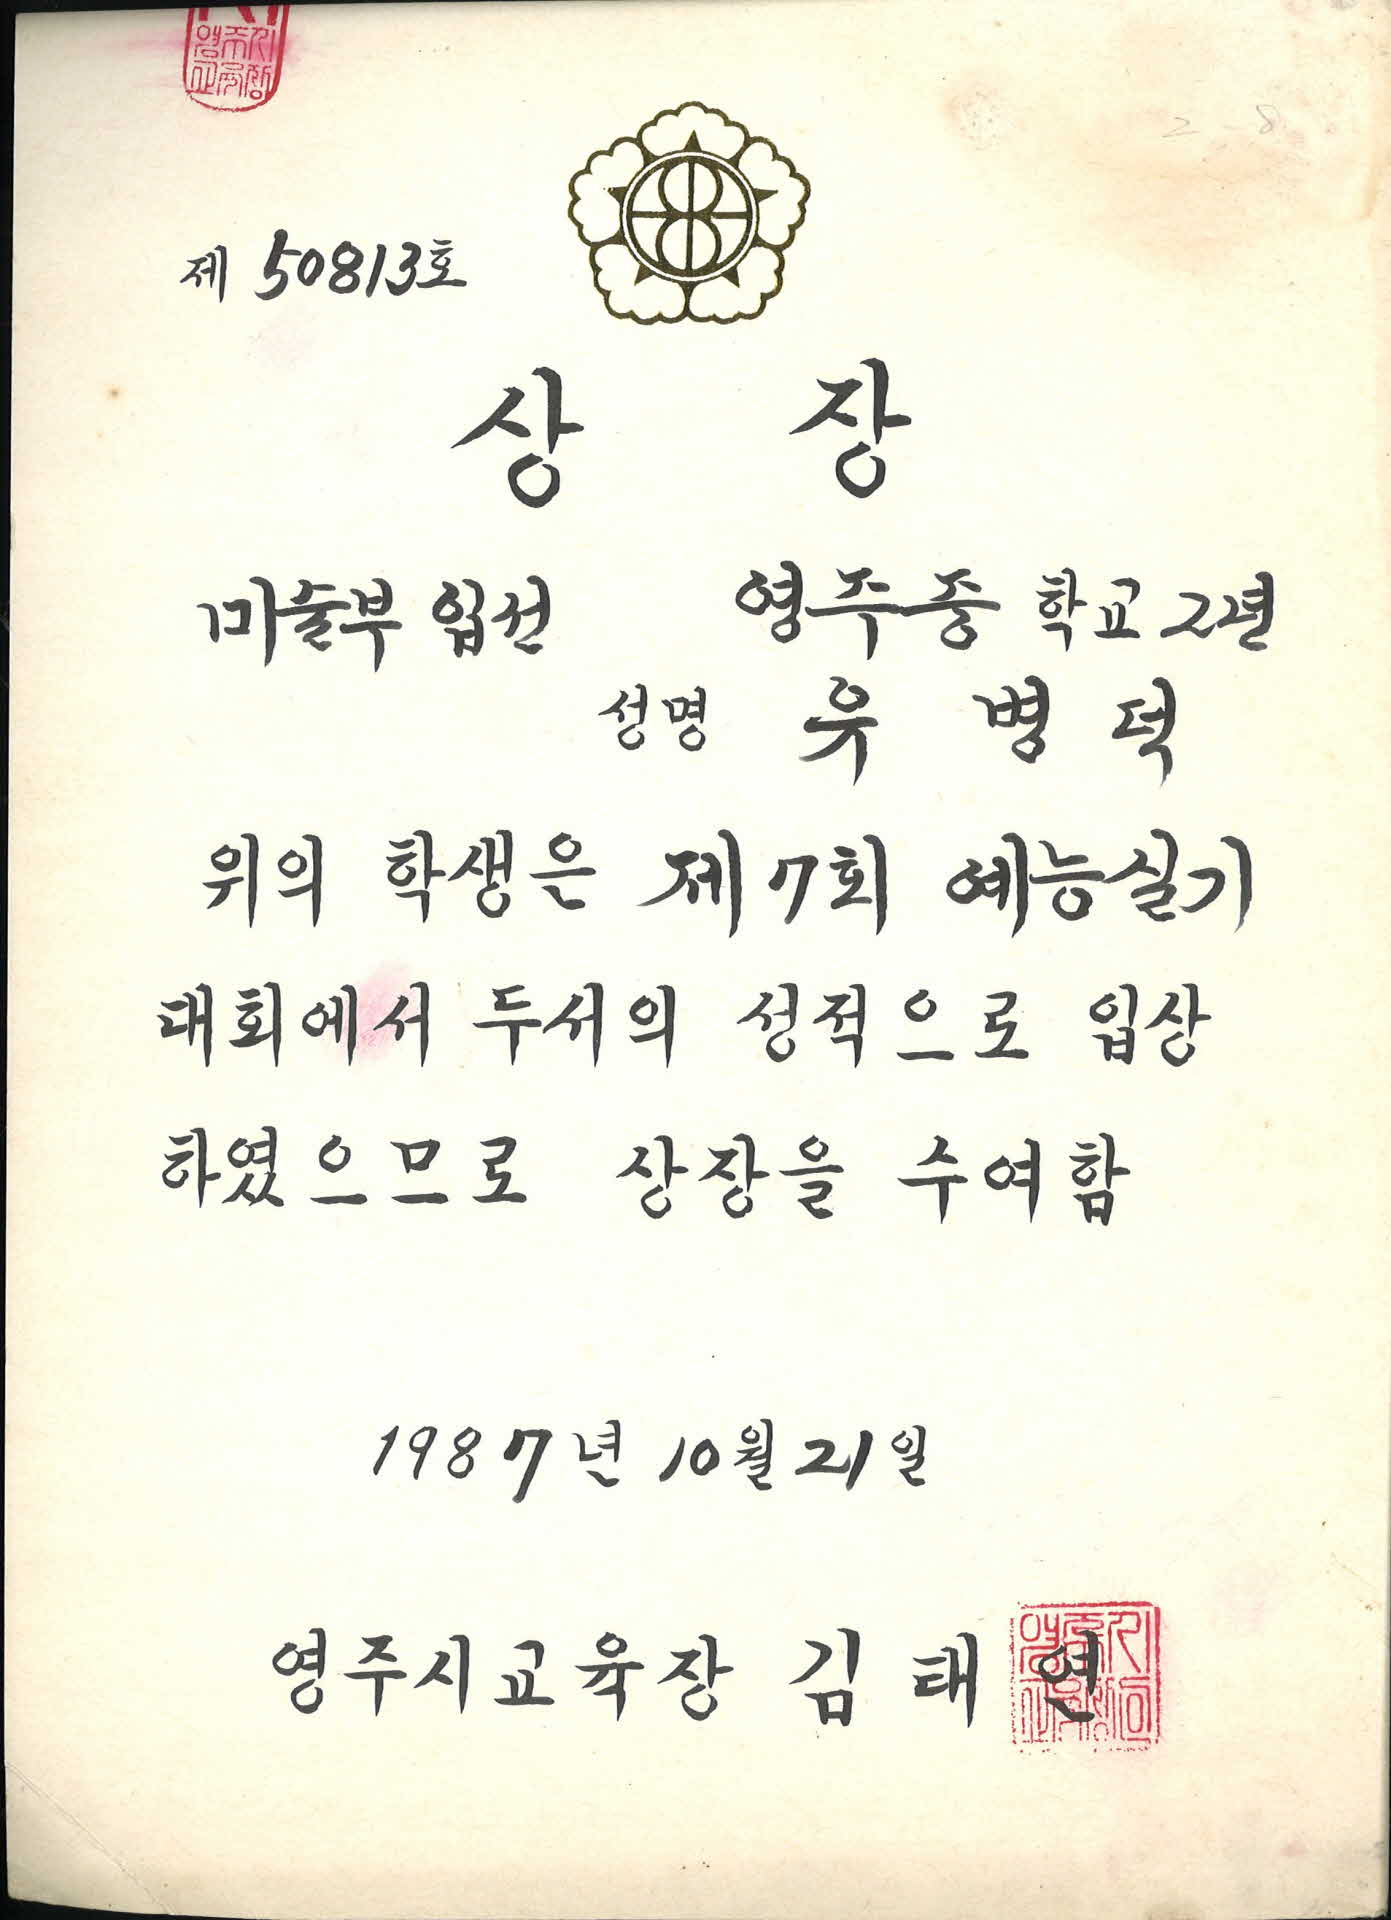 2-8
제 50813호
상 장
미술부 입선 영주중 학교 2년
성명 유 병 덕
위의 학생은 제7회 예능실기
대회에서 두서의 성적으로 입상
하였으므로 상장을 수여함
1987년 10월 21일
영주시교육장 김 태 연